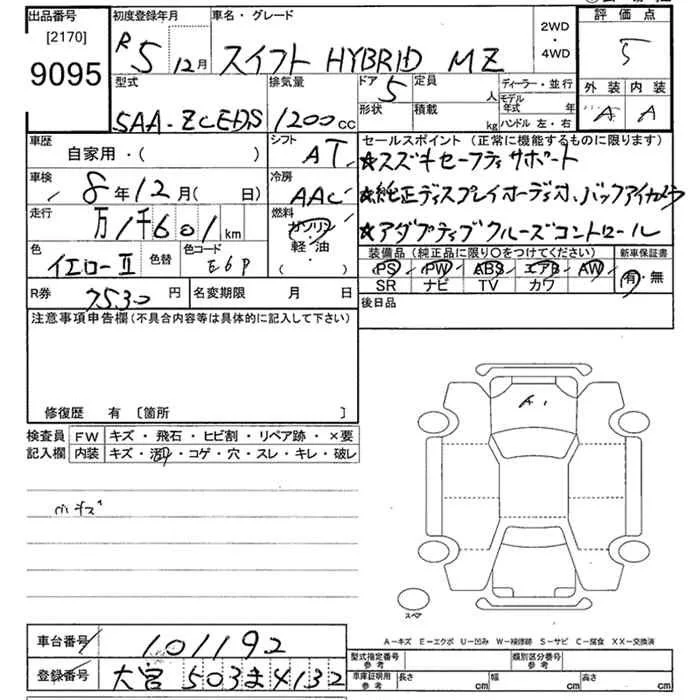 出品番号
[2170]
9095
初度登録年月
R5 12月
車名・グレード
スイフト HYBRID MZ
2WD
・
4WD
評価点
5
外装 内装
A A
型式
5AA-ZCEDS
排気量
1200 cc
ドア 5
形状
定員
人
積載
kg
ディーラー・並行
モデル年式 年
ハンドル 左・右
車歴
自家用・( )
シフト
AT
車検
8年12月( 日)
冷房
AAC
走行
万1千601 km
燃料
ガソリン
軽・油
( )
色
イエローII
色替
色コード
E6P
セールスポイント(正常に機能するものに限ります)
★スズキセーフティサポート
★純正ディスプレイオーディオ、バックアイカメラ
★アダプティブクルーズコントロール
装備品(純正品に限り○をつけてください)
新車保証書
PS PW ABS エアB AW
SR ナビ TV カワ
有・無
R券
7530 円
名変期限 月 日
後日品
注意事項申告欄(不具合内容等は具体的に記入して下さい)
修復歴 有 〔箇所 〕
検査員
記入欄
FW キズ・飛石・ヒビ割・リペア跡・×要
内装 キズ・汚れ・コゲ・穴・スレ・キレ・破レ
A1
スペア
A-キズ E-エクボ U-凹み W-補修跡 S-サビ C-腐食 XX-交換済
車台番号
101192
登録番号
大宮 503 ま 4132
型式指定番号
参考
類別区分番号
参考
車庫証明用
参考
長さ cm
幅 cm
高さ cm